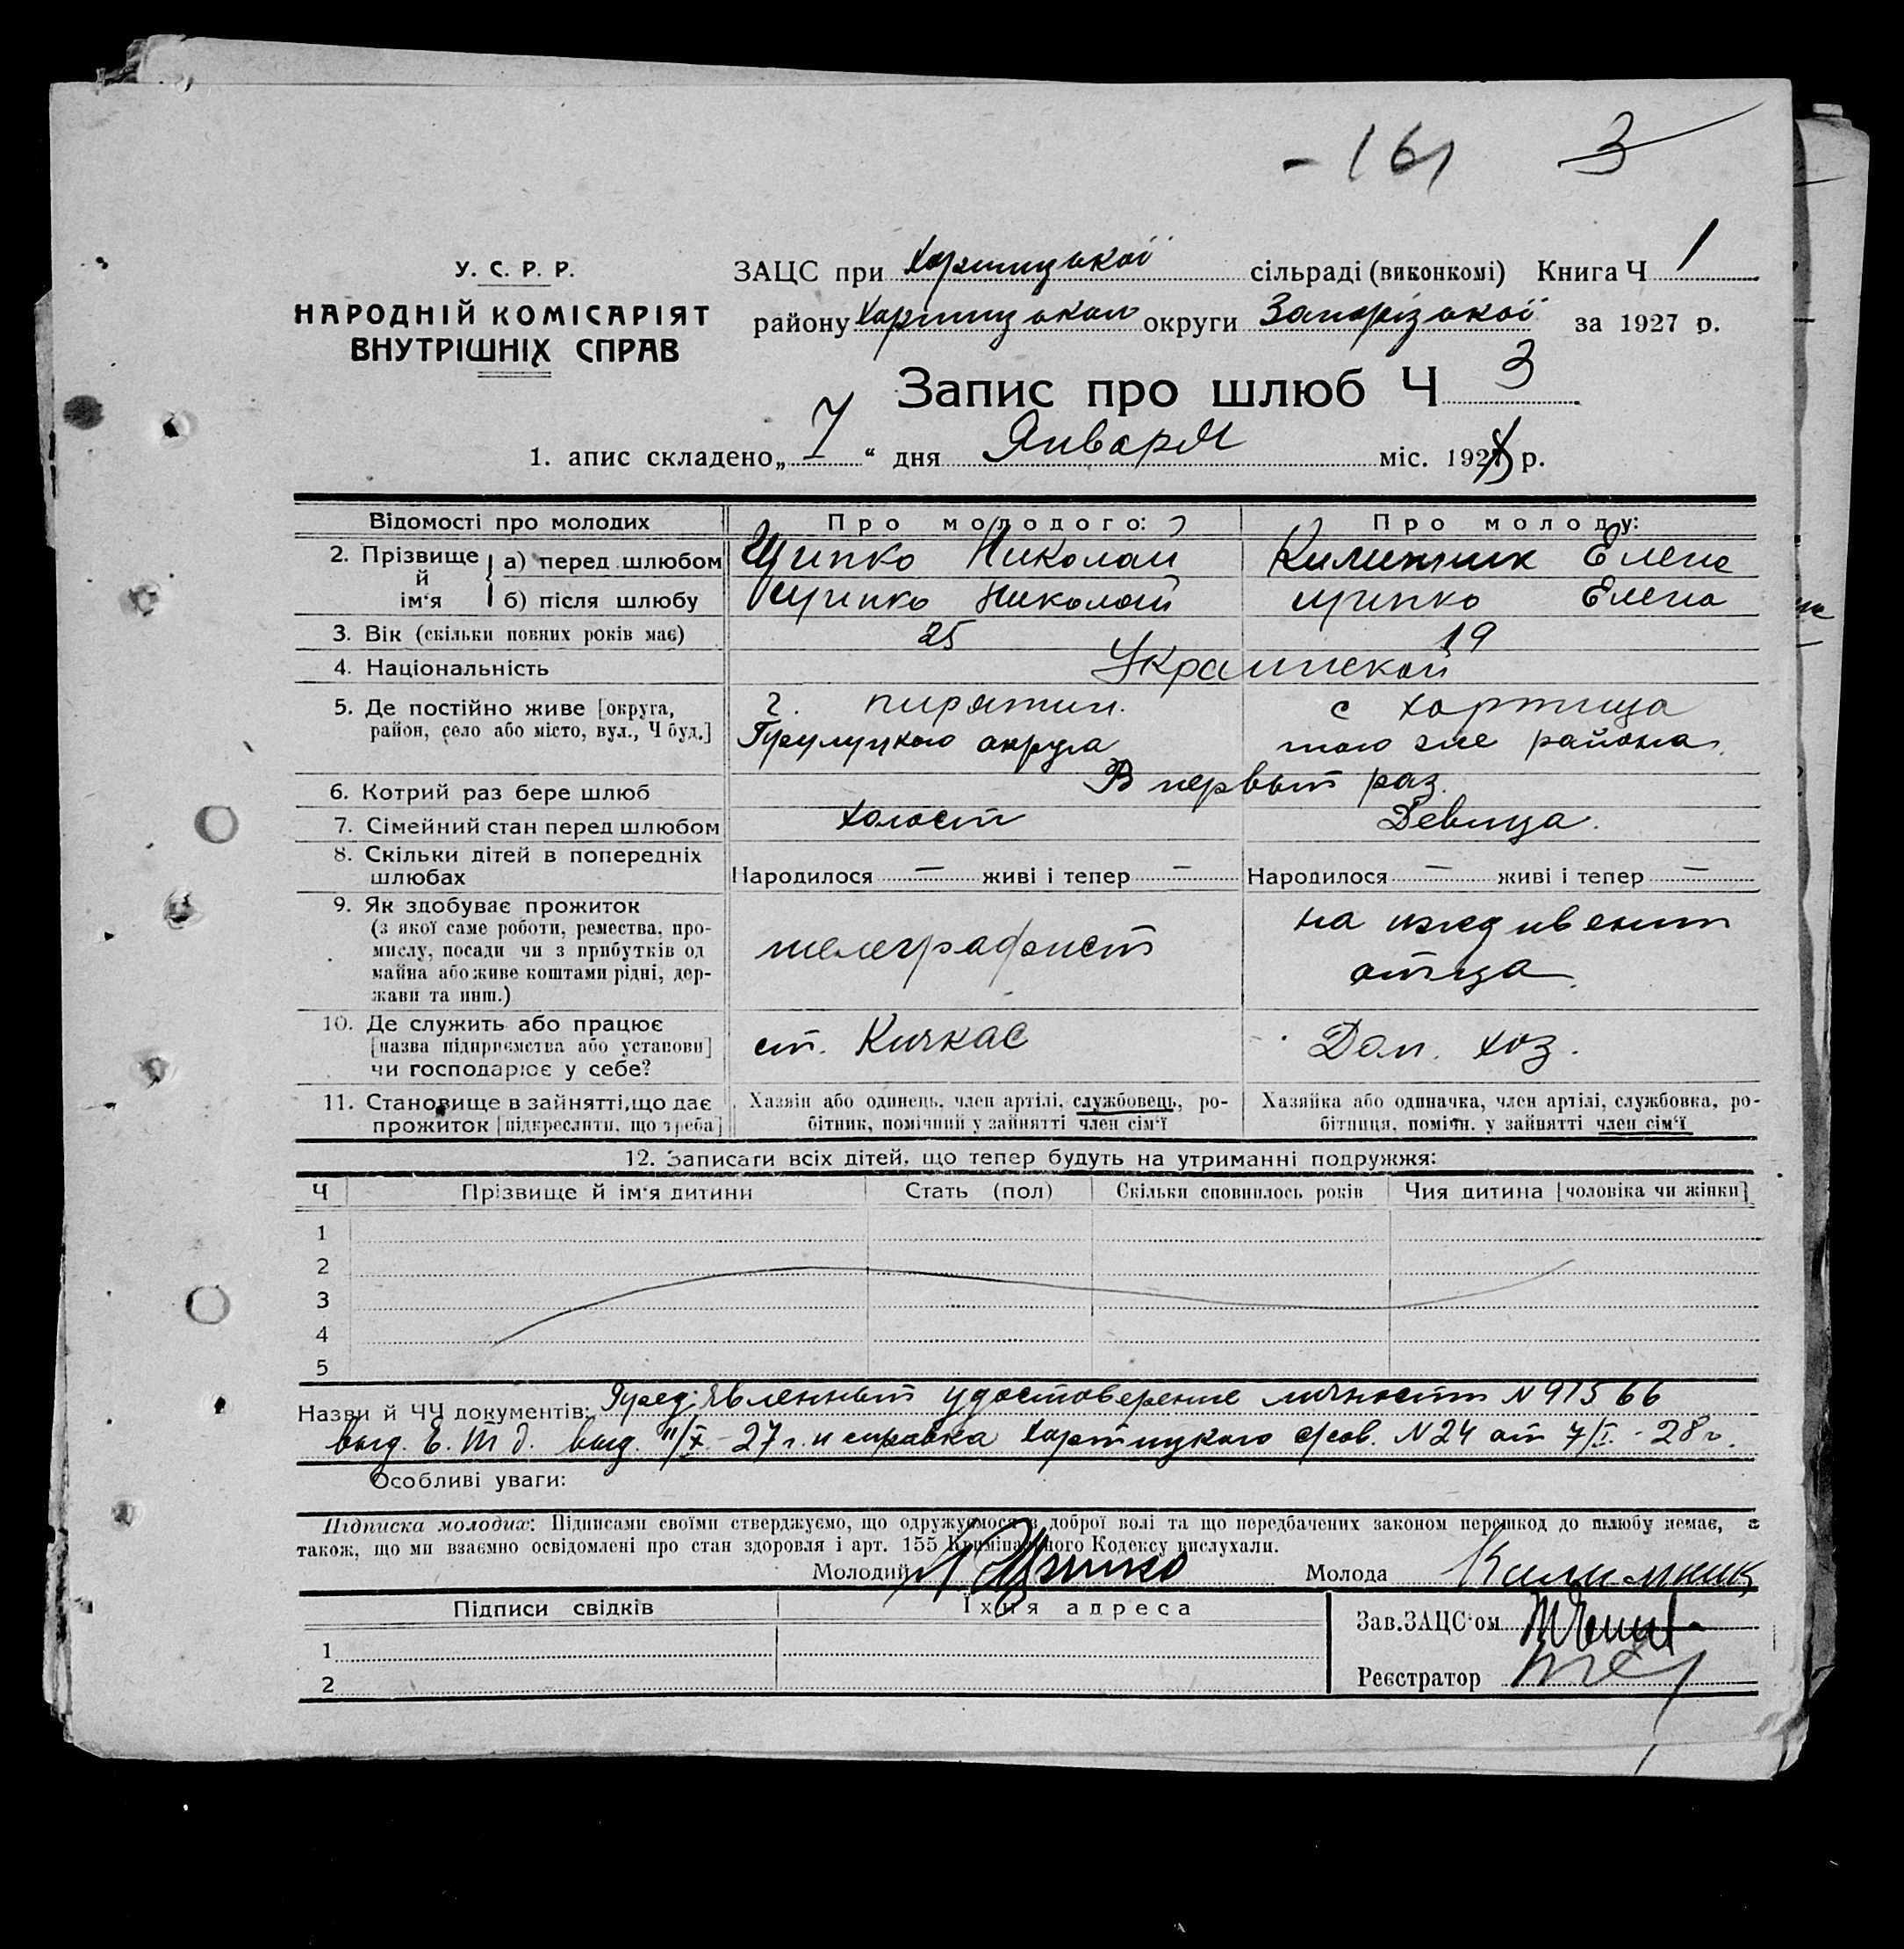 - 161 3
У. С. Р. Р.
НАРОДНІЙ КОМІСАРІЯТ
ВНУТРІШНІХ СПРАВ
ЗАЦС при Хортицької сільраді (виконкомі) Книга Ч 1
району Хортицького округи Запорізької за 1927 р.
Запис про шлюб Ч 3
1. апис складено „ 7 “ дня Января міс. 1928 р.
Відомості про молодих Про молодого: Про молоду:
2. Прізвище й ім'я а) перед шлюбом Щипко Николай Килимник Елена
б) після шлюбу Щипко Николай Щипко Елена
3. Вік (скільки повних років має) 25 19
4. Національність Украинской
5. Де постійно живе [округа, г. Пирятин. с Хортица
район, село або місто, вул., Ч буд.] округа того же района.
6. Котрий раз бере шлюб В первый раз.
7. Сімейний стан перед шлюбом Холост Девица.
8. Скільки дітей в попередніх
шлюбах Народилося — живі і тепер — Народилося — живі і тепер —
9. Як здобуває прожиток
(з якої саме роботи, ремества, про-
мислу, посади чи з прибутків од
майна або живе коштами рідні, дер-
жави та инш.)
телеграфист
на иждивении
отца.
10. Де служить або працює
[назва підприємства або установи]
чи господарює у себе?
ст. Кичкас
Дом. хоз.
11. Становище в зайнятті, що дає
прожиток [підкреслити, що треба]
Хазяїн або одинець, член артілі, службовець, ро-
бітник, помічний у зайнятті член сім'ї
Хазяйка або одиначка, член артілі, службовка, ро-
бітниця, помічн. у зайнятті член сім'ї
12. Записати всіх дітей, що тепер будуть на утриманні подружжя:
Ч Прізвище й ім'я дитини Стать (пол) Скільки сповнилось років Чия дитина [чоловіка чи жінки]
1
2
3
4
5
Назви й ЧЧ документів: Пред'явленный удостоверение личности N 91566
выд. Е. т д. выд. 11/X - 27 г. и справка Хортицкого с/сов. N 24 от 7/I - 28 г.
Особливі уваги:
Підписка молодих: Підписами своїми стверджуємо, що одружуємося з доброї волі та що передбачених законом перешкод до шлюбу немає, а
також, що ми взаємно освідомлені про стан здоровля і арт. 155 Кримінального Кодексу вислухали.
Молодий Щипко Молода Килимник
Підписи свідків Їхня адреса
1
2
Зав.ЗАЦС'ом
Реєстратор